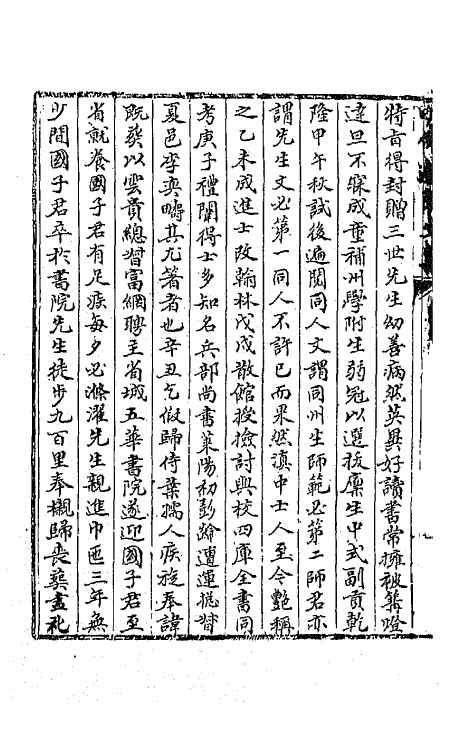 特旨得封贈三世先生幼善病然英異好讀書常擁被篝燈
達旦不寐成童補州學附生弱冠以選拔廩生中式副貢乾
隆甲午秋試後遍閱同人文謂同州生師範必第二師君亦
謂先生文必第一同人不許已而果然滇中士人至今艷稱
之乙未成進士改翰林戊戌散館授檢討與校四庫全書同
考庚子禮闈得士多知名兵部尚書萊陽初彭齡漕運總督
夏邑李奕疇其尤著者也辛丑乞假歸侍葉孺人疾旋奉諱
既葬以雲貴總督富綱聘主省城五華書院遂迎國子君至
省就養國子君有足疾每夕必滌濯先生親進巾匜三年無
少間國子君卒於書院先生徒步九百里奉櫬歸喪葬盡礼